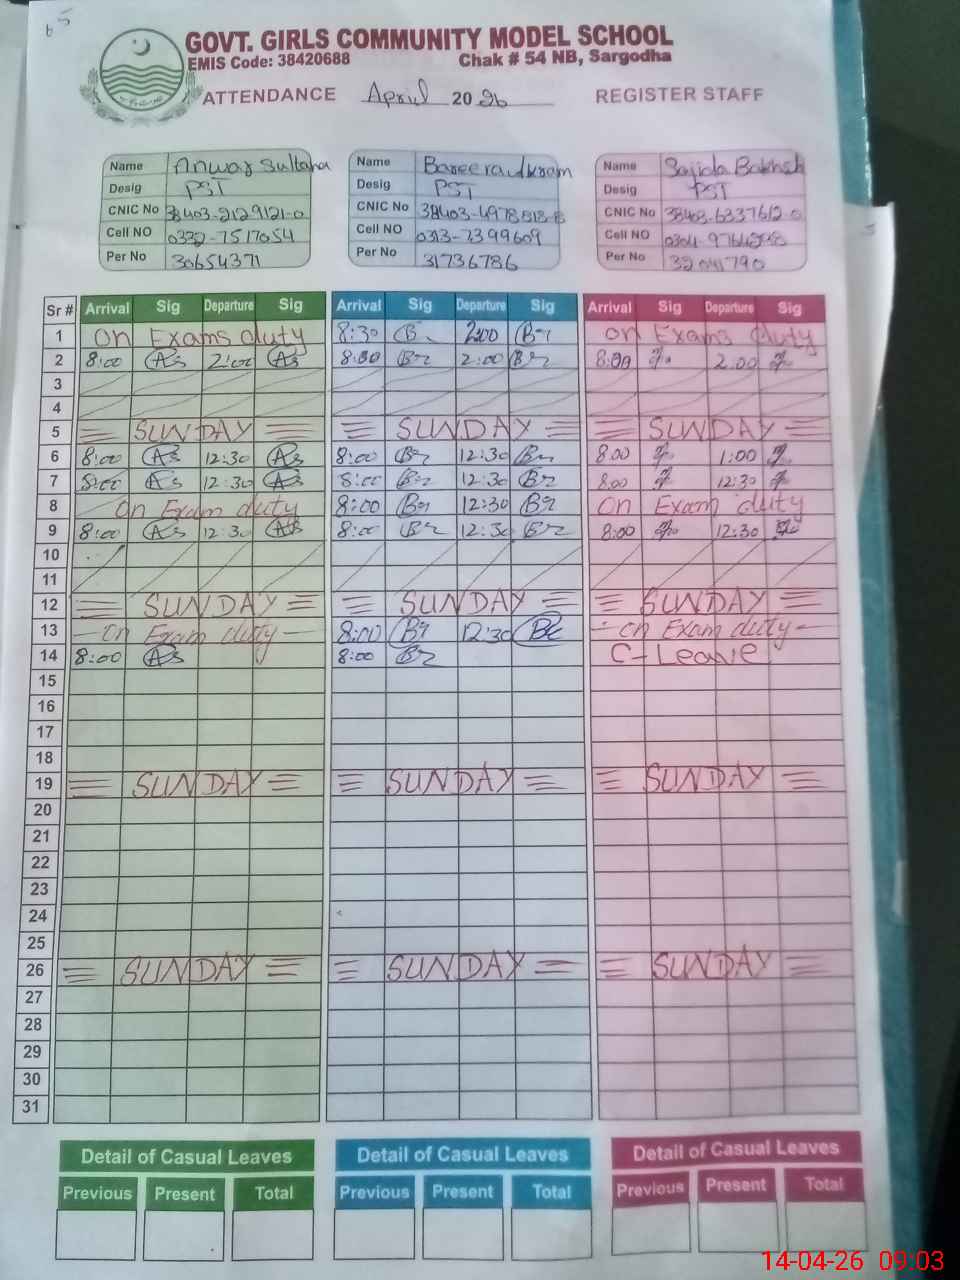 65
GOVT. GIRLS COMMUNITY MODEL SCHOOL
EMIS Code: 38420688 Chak # 54 NB, Sargodha
ATTENDANCE April 2026 REGISTER STAFF
Name Anwar Sultana Name Bareera Ikram Name Sajida Bakhsh
Desig PST Desig PST Desig PST
CNIC No 38403-2129121-0 CNIC No CNIC No 38403-6337612-0
Cell NO 0332-7517054 Cell NO 0313-7399609 Cell NO
Per No 30654371 Per No 31736786 Per No 32041790
Sr # Arrival Sig Departure Sig Arrival Sig Departure Sig Arrival Sig Departure Sig
1 On Exams duty 8:30 B 2:00 Br on Exams duty
2 8:00 As 2:00 As 8:00 Br 2:00 Br 8:00 2.00
3
4
5 SUNDAY SUNDAY SUNDAY
6 8:00 As 12:30 As 8:00 Br 12:30 Br 8.00 1:00
7 8:00 As 12:30 As 8:00 Br 12:30 Br 8.00 12:30
8 On Exam duty 8:00 Br 12:30 Br On Exam duty
9 8:00 As 12:30 As 8:00 Br 12:30 Br 8:00 12:30
10
11
12 SUNDAY SUNDAY SUNDAY
13 -On Exam duty- 8:00 Br 12:30 Br -on Exam duty-
14 8:00 As 8:00 Br C-Leave
15
16
17
18
19 SUNDAY SUNDAY SUNDAY
20
21
22
23
24
25
26 SUNDAY SUNDAY SUNDAY
27
28
29
30
31
Detail of Casual Leaves Detail of Casual Leaves Detail of Casual Leaves
Previous Present Total Previous Present Total Previous Present Total
14-04-26 09:03